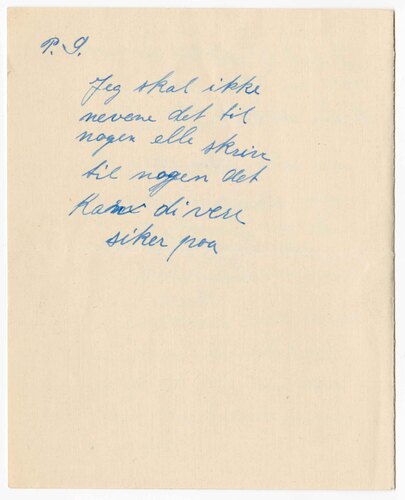 P. S.
Jeg skal ikke
nevene det til
nogen elle skrive
til nogen det
Kan di vere
siker poa